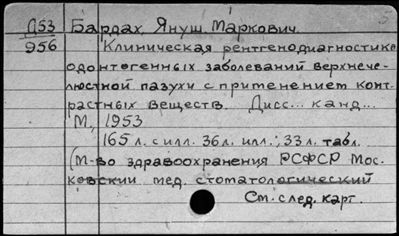 Д53 Бардах, Януш Маркович.
956 Клиническая рентгенодиагностика
одонтогенных заболеваний верхнече-
люстной пазухи с применением конт-
растных веществ. Дисс... канд...
М., 1953
165 л. с илл. 36 л. илл.; 33 л. табл.
(М-во здравоохранения РСФСР Мос-
ковский мед. стоматологический
См. след. карт.